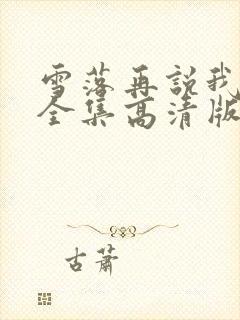 雪落再説我
全集高清版
古蕭